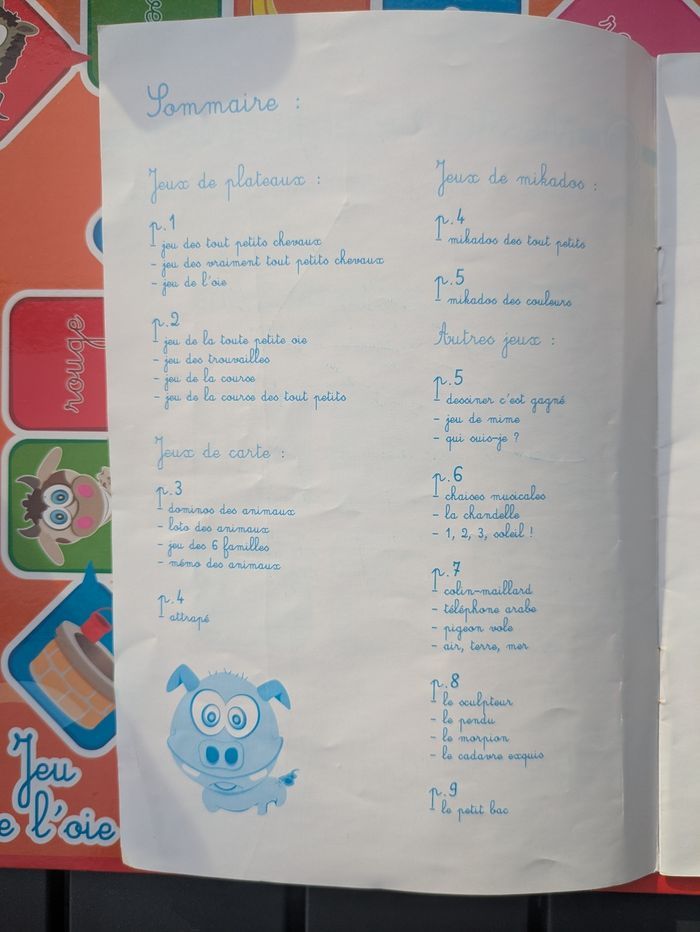 Sommaire :
Jeux de plateaux :
p.1
- jeu des tout petits chevaux
- jeu des vraiment tout petits chevaux
- jeu de l'oie
p.2
- jeu de la toute petite oie
- jeu des trouvailles
- jeu de la course
- jeu de la course des tout petits
Jeux de carte :
p.3
- dominos des animaux
- loto des animaux
- jeu des 6 familles
- mémo des animaux
p.4
- attrapé
Jeux de mikados :
p.4
- mikados des tout petits
p.5
- mikados des couleurs
Autres jeux :
p.5
- dessiner c'est gagné
- jeu de mime
- qui suis-je ?
p.6
- chaises musicales
- la chandelle
- 1, 2, 3, soleil !
p.7
- colin-maillard
- téléphone arabe
- pigeon vole
- air, terre, mer
p.8
- le sculpteur
- le pendu
- le morpion
- le cadavre exquis
p.9
- le petit bac
rouge
Jeu
de l'oie